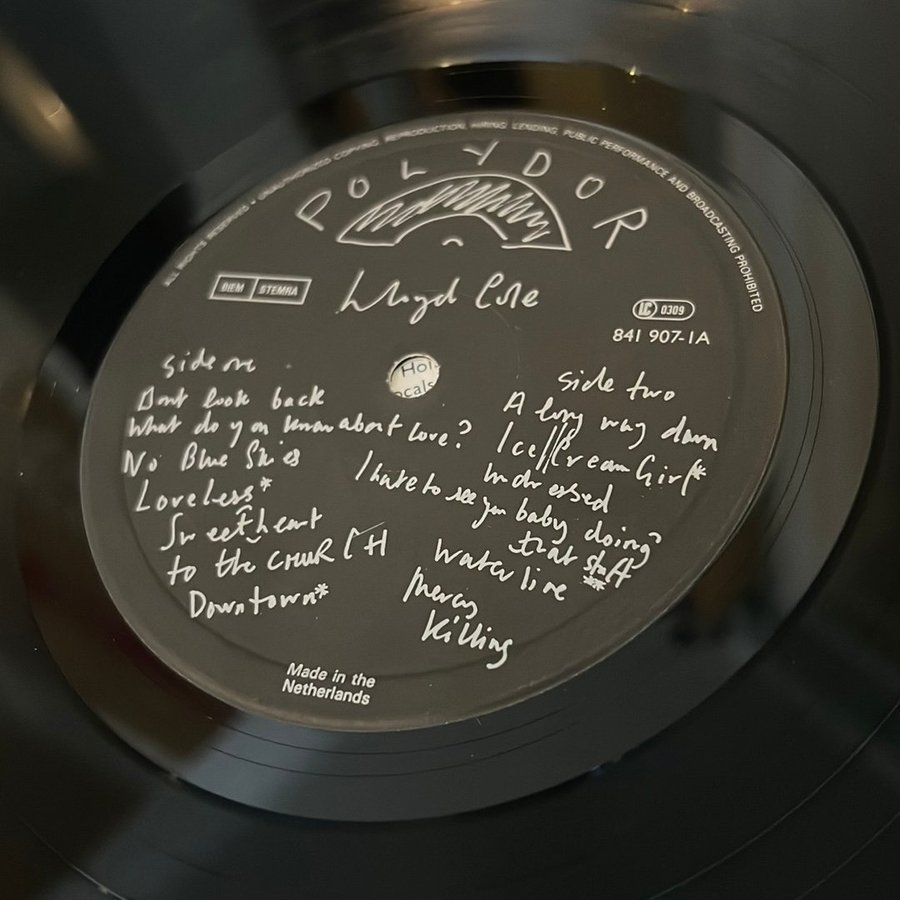 ALL RIGHTS RESERVED • UNAUTHORIZED COPYING, REPRODUCTION, HIRING, LENDING, PUBLIC PERFORMANCE AND BROADCASTING PROHIBITED
POLYDOR
BIEM STEMRA
Lloyd Cole
LC 0309
841 907-1A
Hol
ocals
side one
Dont look back
What do you know about love?
No Blue Skies
Loveless*
Sweetheart
to the CHURCH
Downtown*
side two
A long way down
Ice Cream Girl*
undressed
I hate to see you baby doing
that stuff
waterline **
Mercy
Killing
Made in the
Netherlands